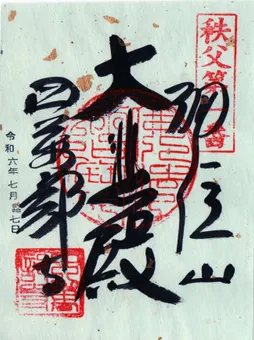 秩父第一番
誦経山
大悲殿
四萬部寺
令和六年七月 七日